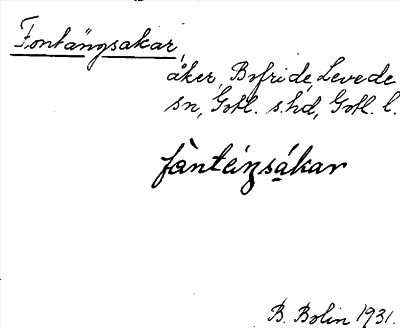 Fontängsakar,
åker, Bofride, Levede
sn, Gotl. s. hd, Gotl. l.
fàntéŋsákar
B. Bolin 1931.